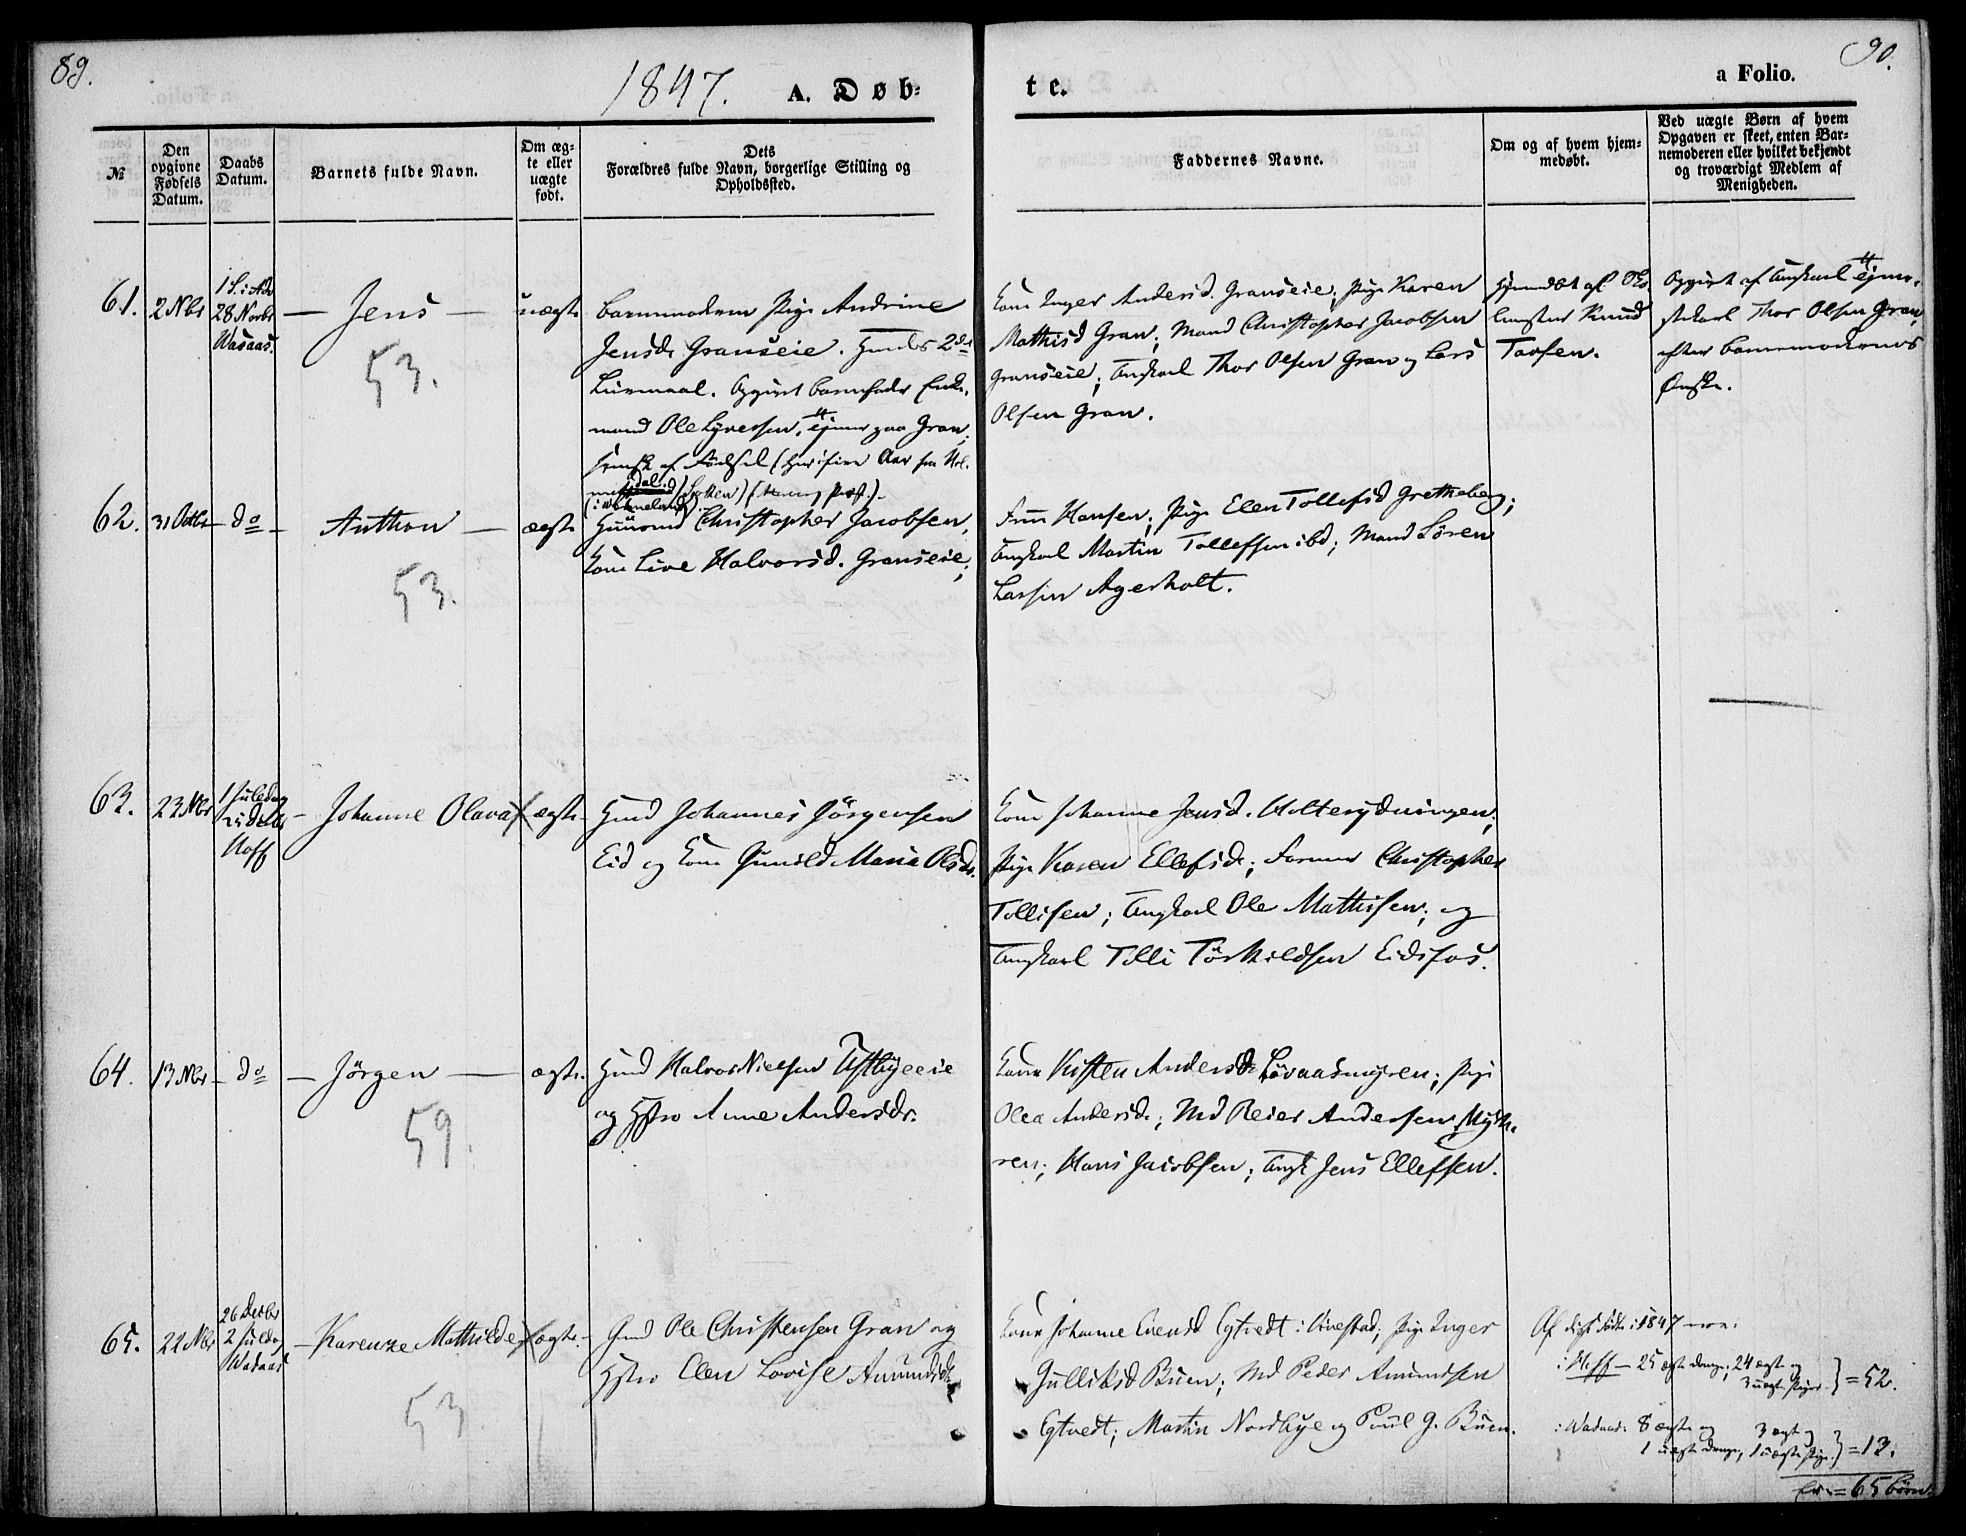 89.
1847. A. Døb-
te.
a Folio.
90.
№
Den opgivne Fødsels Datum.
Daabs Datum.
Barnets fulde Navn.
Om æg-
te eller
uægte
født.
Dets
Forældres fulde Navn, borgerlige Stilling og
Opholdssted.
Faddernes Navne.
Om og af hvem hjem-
medøbt.
Ved uægte Børn af hvem
Opgaven er skeet, enten Bar-
nemoderen eller hvilket bekjendt
og troværdigt Medlem af
Menigheden.
61.
2 Nbr
1 S. i Adv
28 Novbr
Wasaas.
— Jens —
53.
uægte
Barnemoderen Pige Andrine
Jensd. Granseie. Hendes 2det
Leiermaal. Opgivet Barnefader Enke-
mand Ole
paa Gran,
svensk af Fødsel
Kone Inger Andersd. Granseie; Pige Karen
Mathisd Gran; Mand Christopher Jacobsen
Granseie; Ungkarl Thor Olsen Gran og Lars
Olsen Gran.
Hjemdøbt af
Knud
Opgivet af Ungkarl
Thor Olsen Gran,
efter Barnemoderens
Ønske.
62.
31 Octbr
do
Anthon —
53.
ægte
Huusmd Christopher Jacobsen,
Kone Live Halvorsd. Granseie;
Hansen; Pige Ellen Tollefsd Gretheberg;
Ungkarl Martin Tollefsen ibd; Mand Søren
Larsen Agerholt.
63.
22 Nbr
1 Juledag
Hoff
Johanne Olava
ægte
Gmd Johannes Jörgensen
Eid og Kone Gunild Maria Olsdr.
Kone Johanne Jensd. Holterydningen;
Pige Karen Ellefsd.; Former Christopher
Tollisen; Ungkarl Ole Mathisen; og
Ungkarl Tolli Törkildsen Eidsfos.
64.
13 Nbr
do
— Jörgen —
59.
ægte.
Gmd Halvor Nielsen Østbyeeie
og Hstro Anne Andersdr.
Kone Kisten Andersd. Løvaasmyren; Pige
Olea Andersd.; Md Reier Andersen Myh-
ren; Hans Jacobsen; Ungk Jens Ellefsen.
65.
22 Nbr
26 Decbr
2 Juledag
Wasaas
— Karenze Mathilde
53
ægte.
Gmd Ole Christensen Gran og
Hstro Elen Lovise Amundsd.
Kone Johanne Evensd Eytvedt i Vivestad; Pige Inger
Gulliksd Buen; Md Peder Amundsen
Eytvedt; Martin Nordbye og Poul G. Buen.
Af disse födte i 1847 ere:
i Hoff — 25 ægte Drenge, 24 ægte og
3 uægte Piger } = 52.
i Wasaas: 8 ægte og 3 ægte og
1 uægte Drenge, 1 uægte Pige } = 13.
Er = 65 Börn.